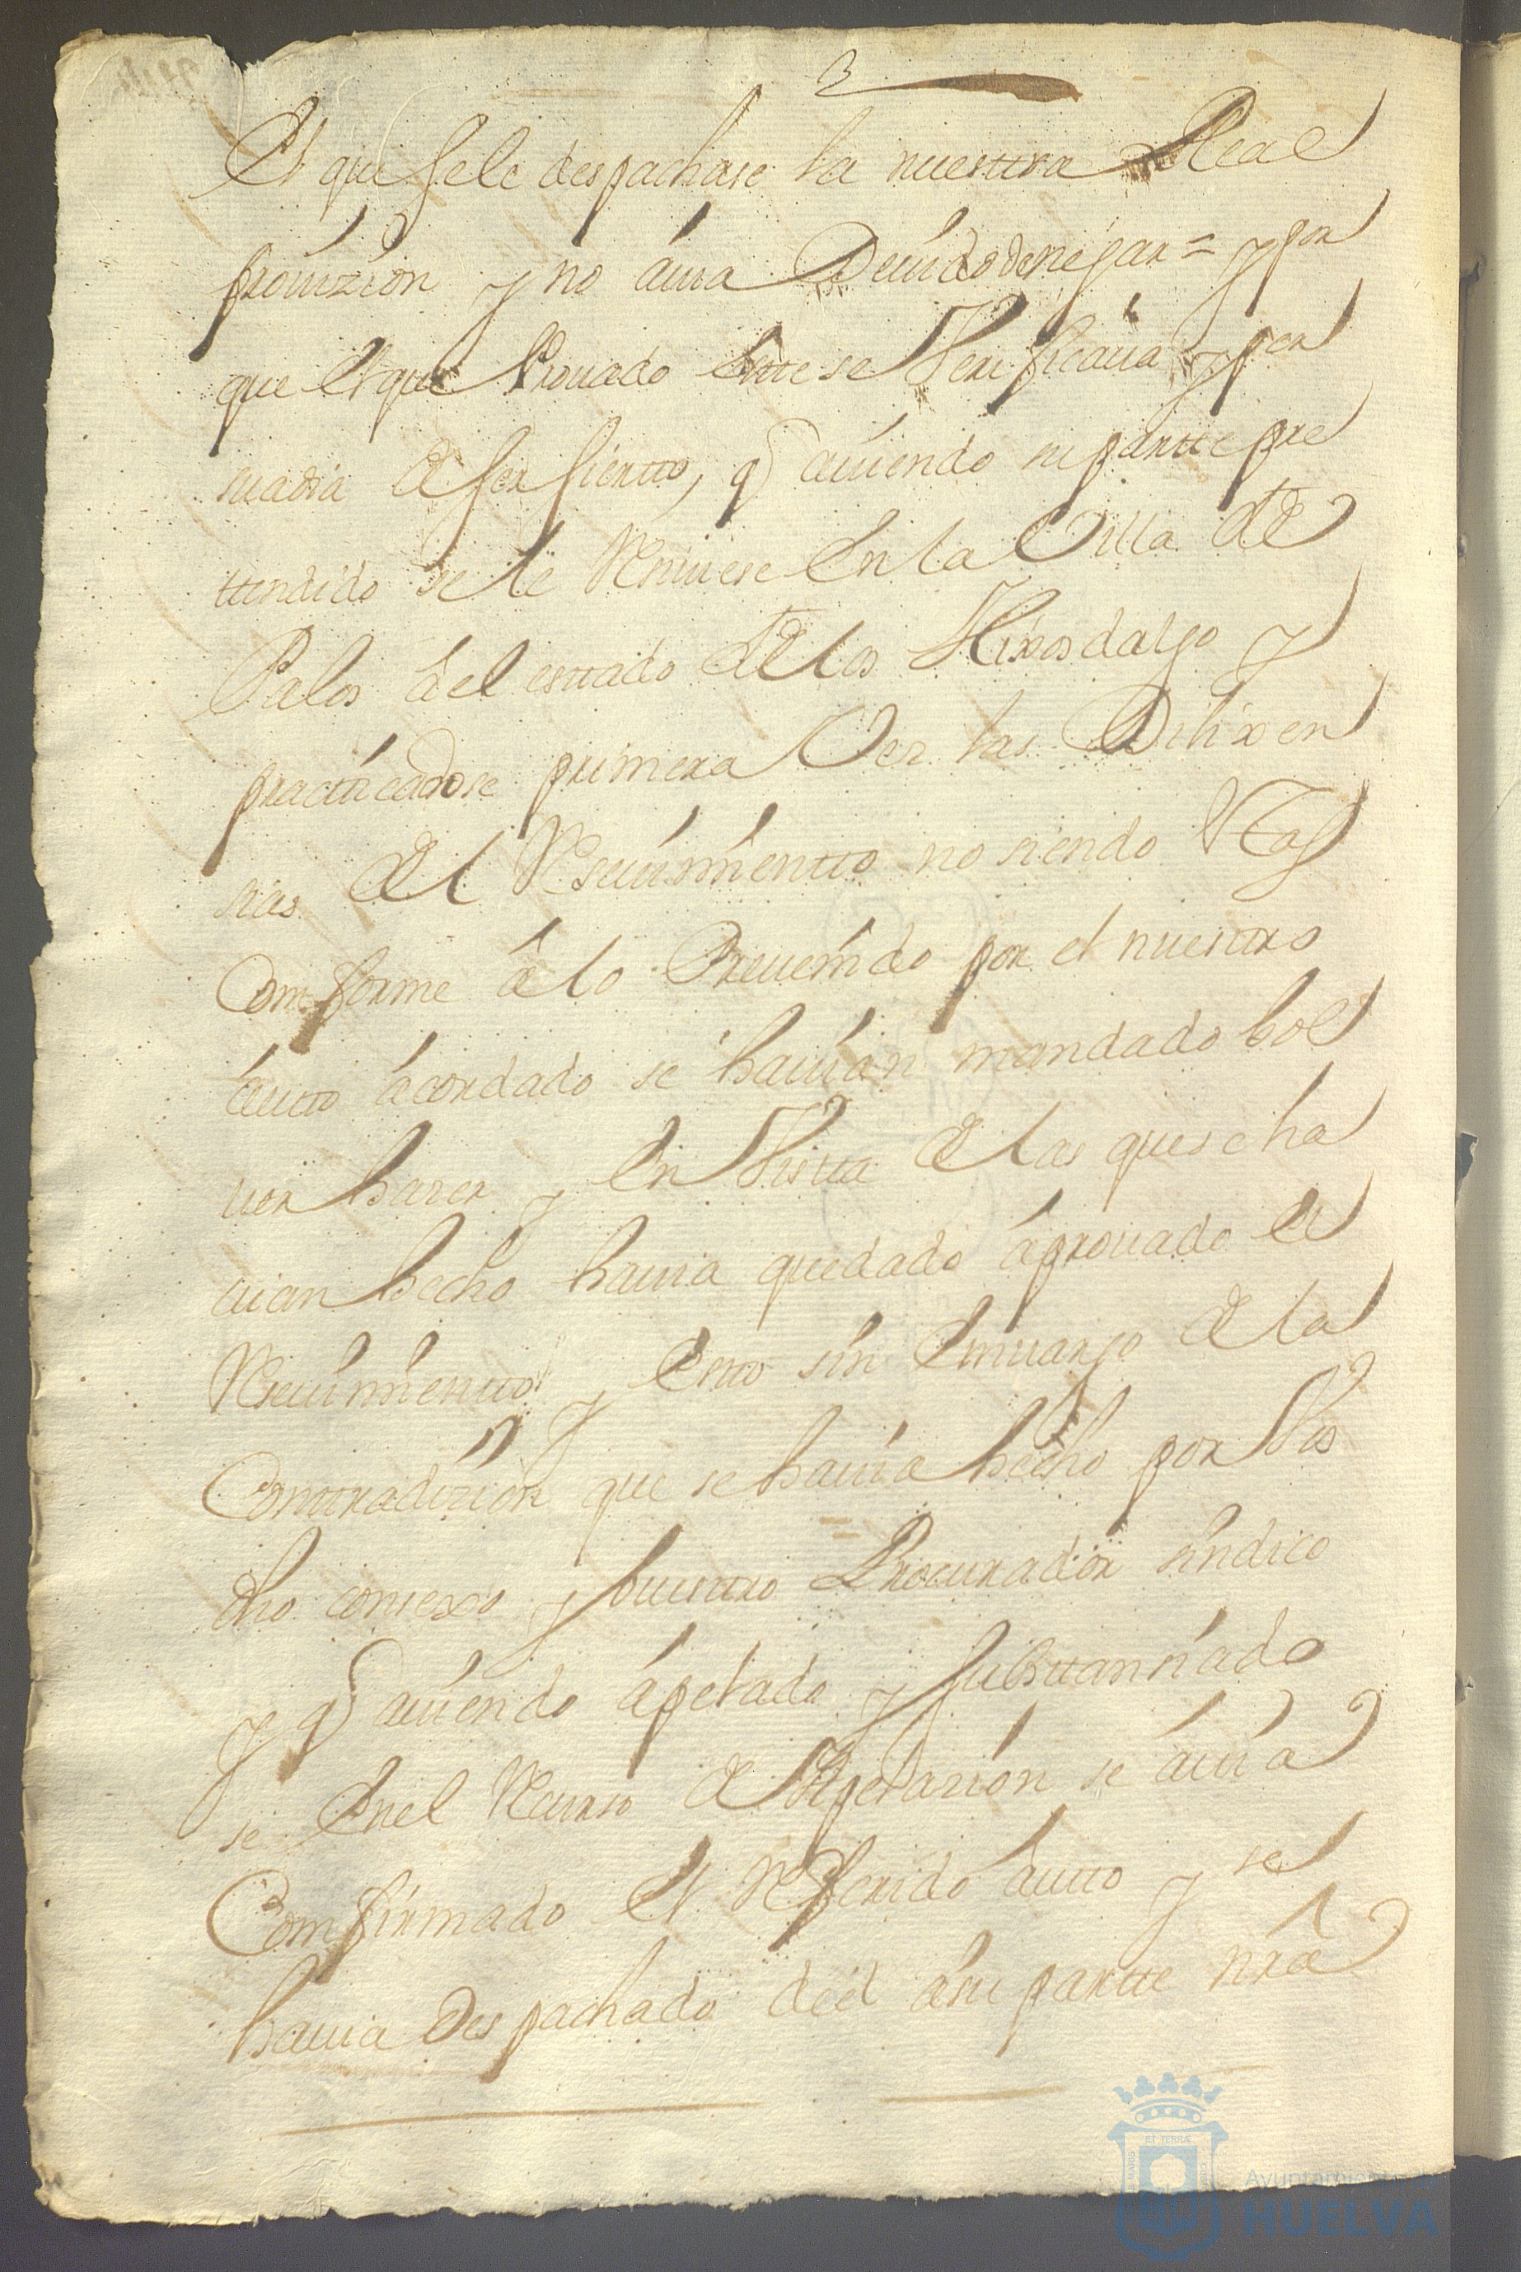 El que se le despachase la nuestra Real
prouizion y no auia Deuido denegar = y por
que el que Prouado Ente se Verificaua y per
suadia a ser sierto, q auiendo su partte pre
ttendido se le Reciuiese En la Villa de
Palos del esttado de los Hixosdalgo y
practticadose primera Vez las Dilixen
sias del Reseuimientto no siendo Estas
Comforme a lo Preuenido por el nuestro
autto acordado se hauian mandado bol
uer hazer y En Vistta de las que se ha
uian hecho hauia quedado aprouado el
Reseuimientto y Esto sin Emuargo de la
Conttradizion que se hauia hecho por Vos
dho consexo y vuestro Procurador sindico
y q auiendo apelado y substtansiado
se En el Recurso de Apelazion se auia
Comfirmado el Referido autto y se
hauia Despachado de el a su partte nra
Ayuntamiento de
HUELVA